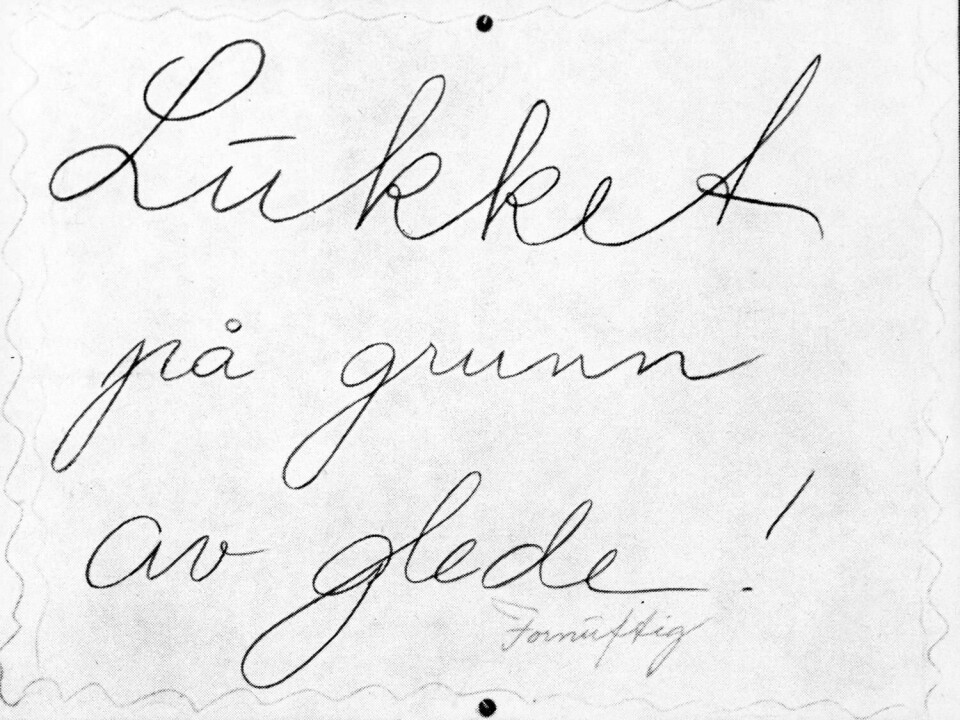 Lukket
på grunn
av glede!
Fornuftig